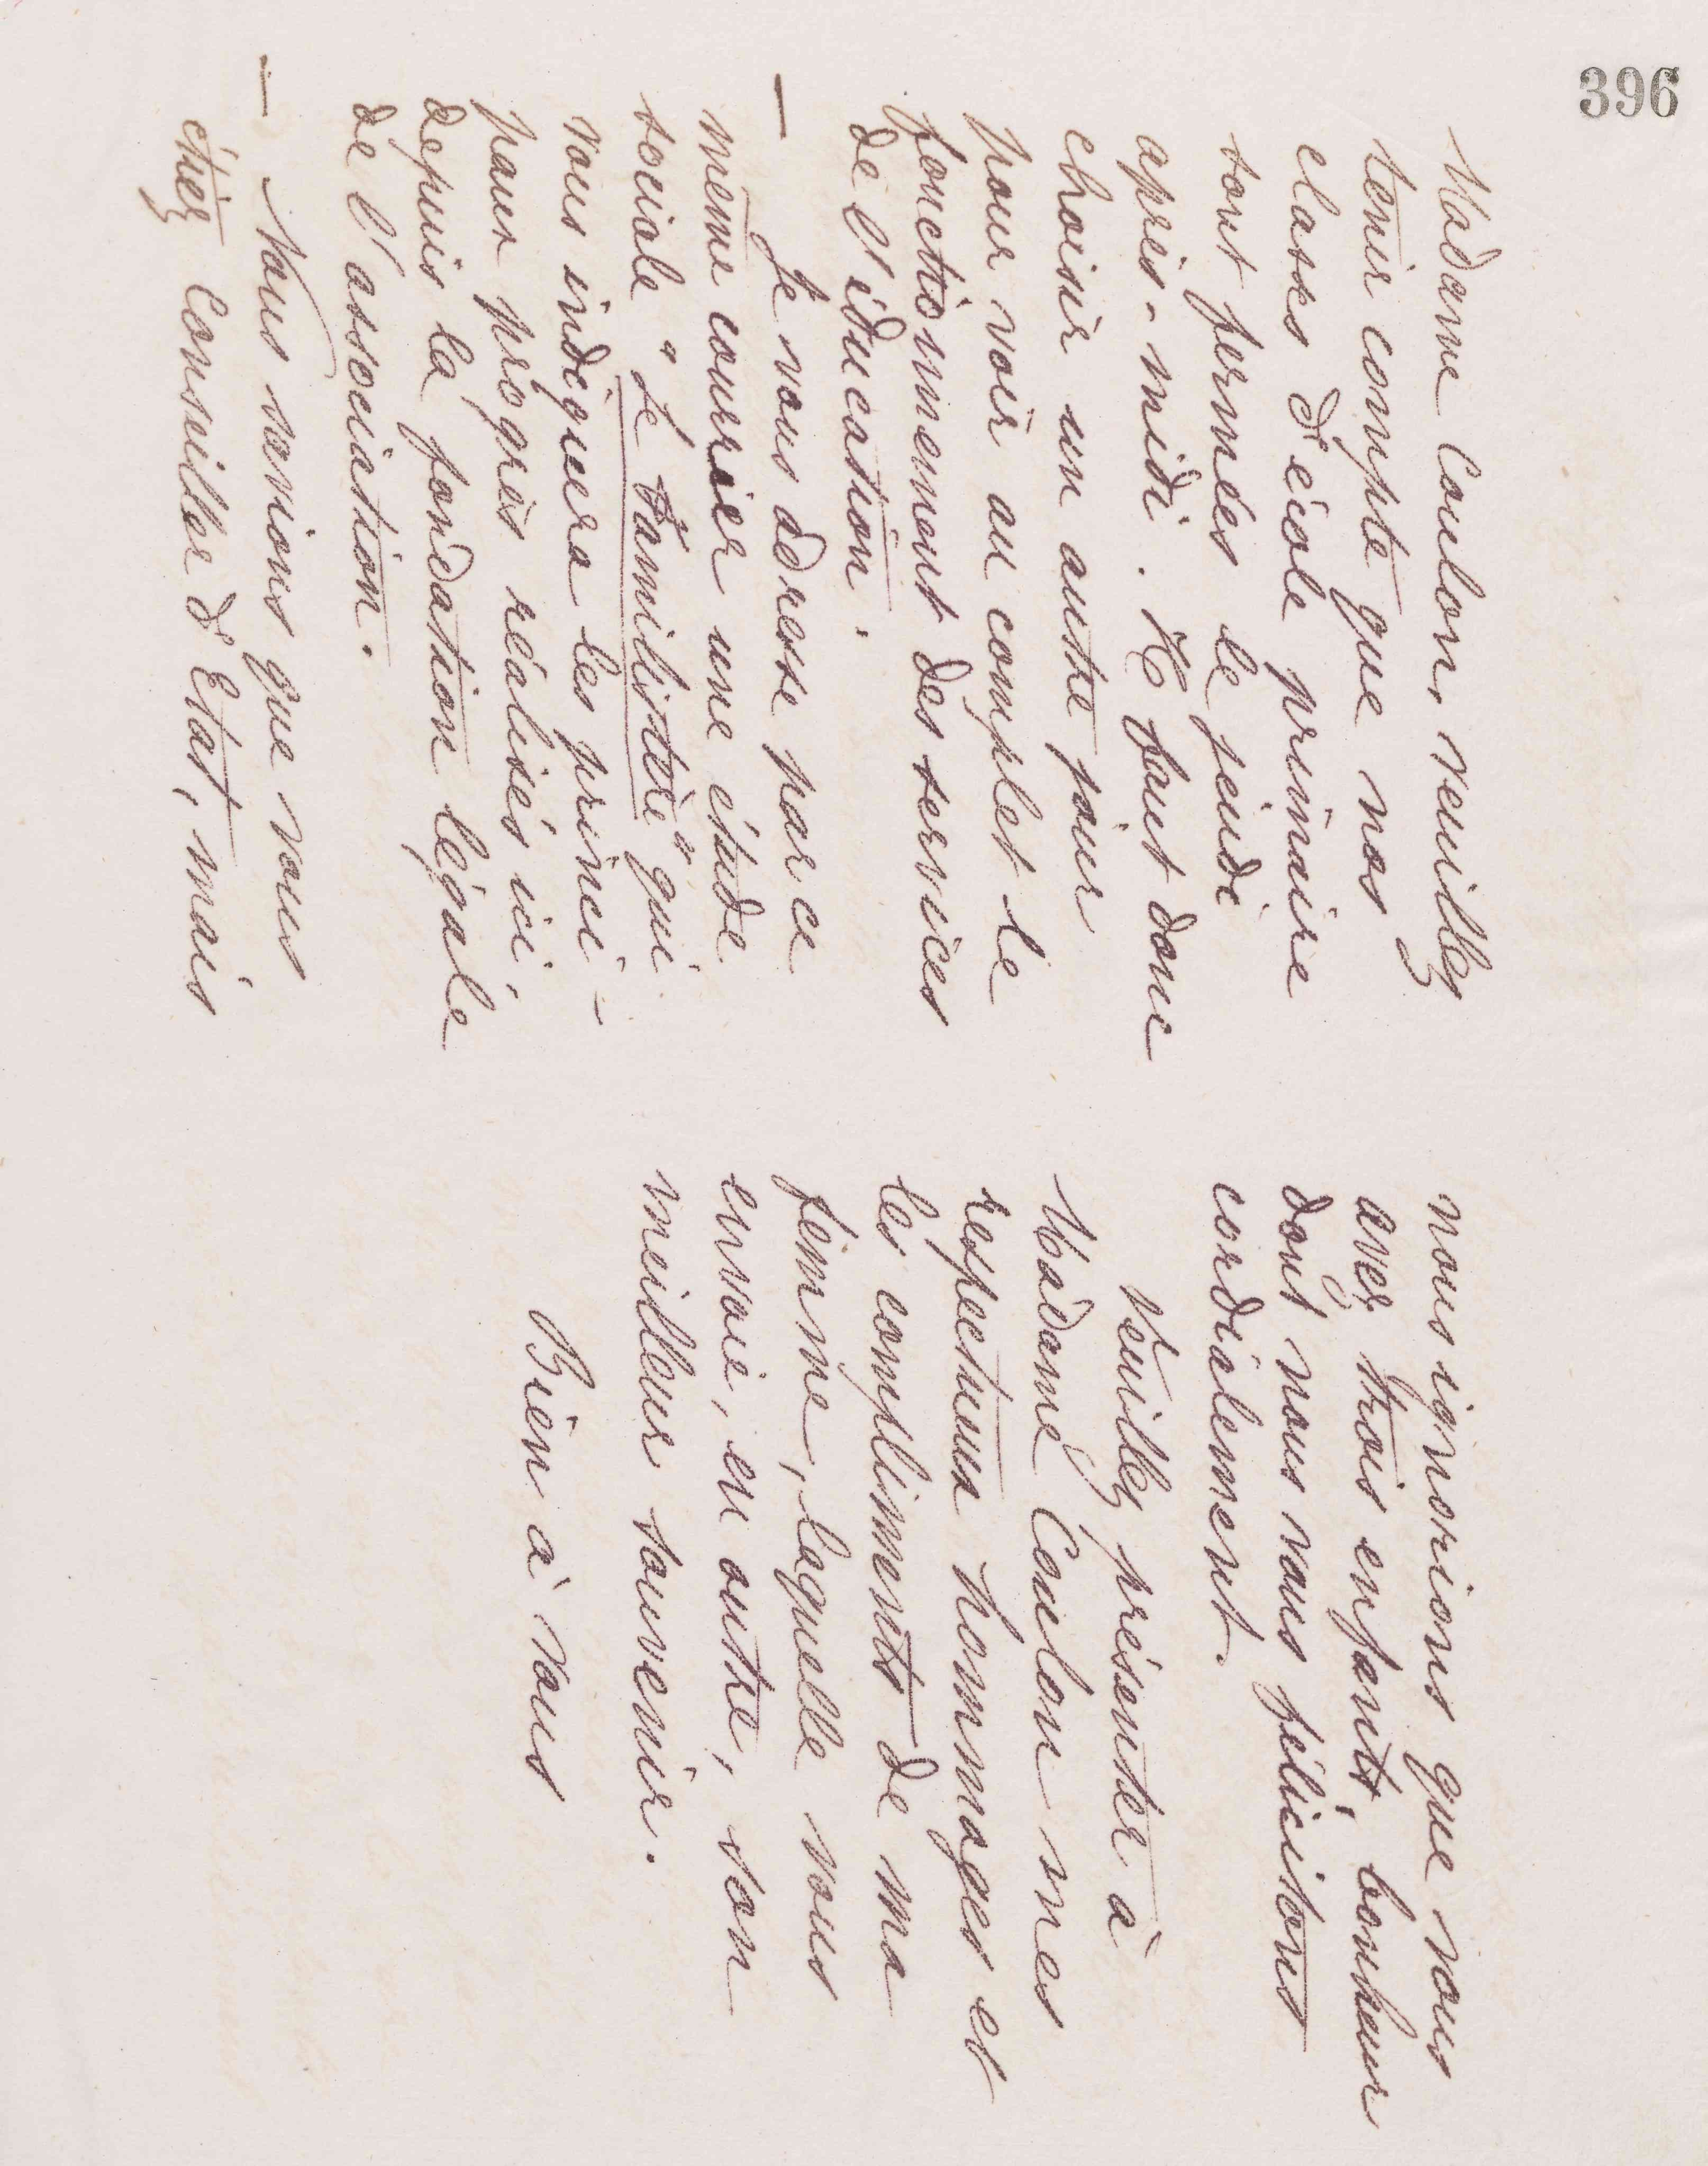 396
Madame Coulon, veuillez
tenir compte que nos
classes d'école primaire
sont fermées le jeudi
après-midi. Il faut donc
choisir un autre jour
pour voir au complet le
fonctionnement des services
de l'éducation.
— Je vous adresse par ce
même courrier une étude
sociale "Le Familistère" qui
vous indiquera les princi-
paux progrès réalisés ici
depuis la fondation légale
de l'association.
— Nous savions que vous
étiez Conseiller d'Etat, mais
nous ignorions que vous
avez trois enfants, bonheur
dont nous vous félicitons
cordialement.
Veuillez présenter à
Madame Coulon mes
respectueux hommages et
les compliments de ma
femme, laquelle vous
envoie, en outre, son
meilleur souvenir.
Bien à vous